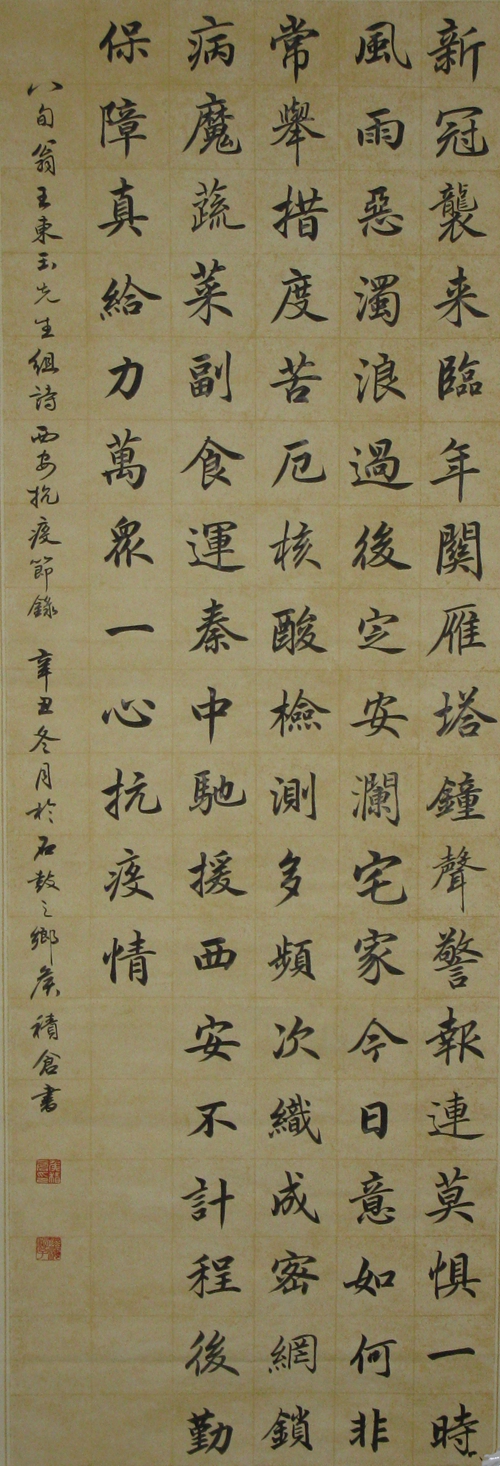 新冠襲来臨年關雁塔鐘聲警報連莫惧一時
風雨惡濁浪過後定安瀾宅家今日意如何非
常舉措度苦厄核酸檢測多頻次織成密網鎖
病魔蔬菜副食運秦中馳援西安不計程後勤
保障真給力萬眾一心抗疫情
八旬翁王東玉先生組詩西安抗疫節錄辛丑冬月於石鼓之鄉侯積倉書